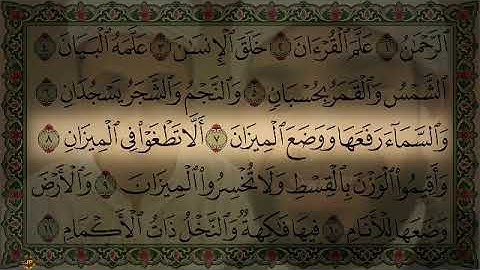 ٱلرَّحْمَٰنُ ١ عَلَّمَ ٱلْقُرْءَانَ ٢ خَلَقَ ٱلْإِنسَٰنَ ٣ عَلَّمَهُ ٱلْبَيَانَ ٤
ٱلشَّمْسُ وَٱلْقَمَرُ بِحُسْبَانٍ ٥ وَٱلنَّجْمُ وَٱلشَّجَرُ يَسْجُدَانِ ٦
وَٱلسَّمَآءَ رَفَعَهَا وَوَضَعَ ٱلْمِيزَانَ ٧ أَلَّا تَطْغَوْا۟ فِى ٱلْمِيزَانِ ٨
وَأَقِيمُوا۟ ٱلْوَزْنَ بِٱلْقِسْطِ وَلَا تُخْسِرُوا۟ ٱلْمِيزَانَ ٩ وَٱلْأَرْضَ
وَضَعَهَا لِلْأَنَامِ ١٠ فِيهَا فَٰكِهَةٌ وَٱلنَّخْلُ ذَاتُ ٱلْأَكْمَامِ ١١